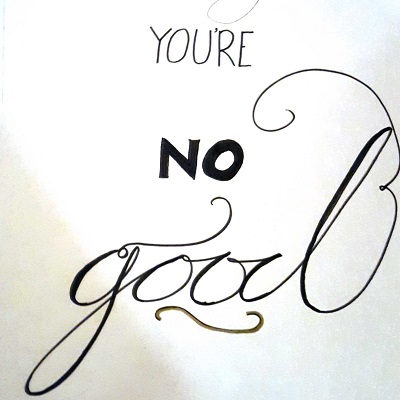 YOU'RE
NO
good